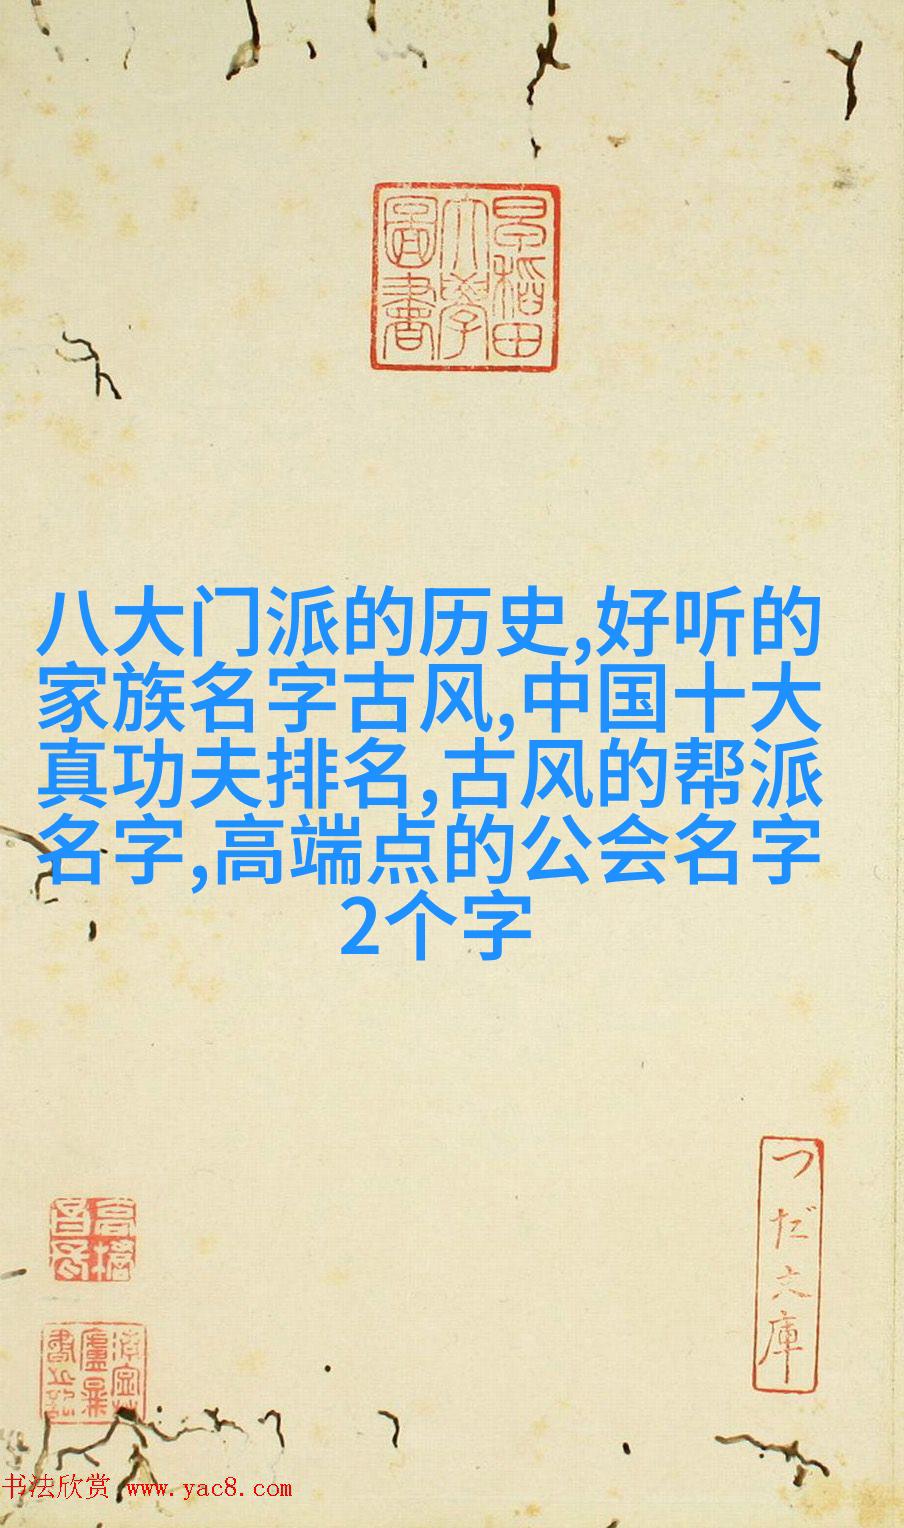 早稻田
大學
圖書
八大门派的历史,好听的
家族名字古风,中国十大
真功夫排名,古风的帮派
名字,高端点的公会名字
2个字
つだ文庫
书法欣赏 www.yac8.com